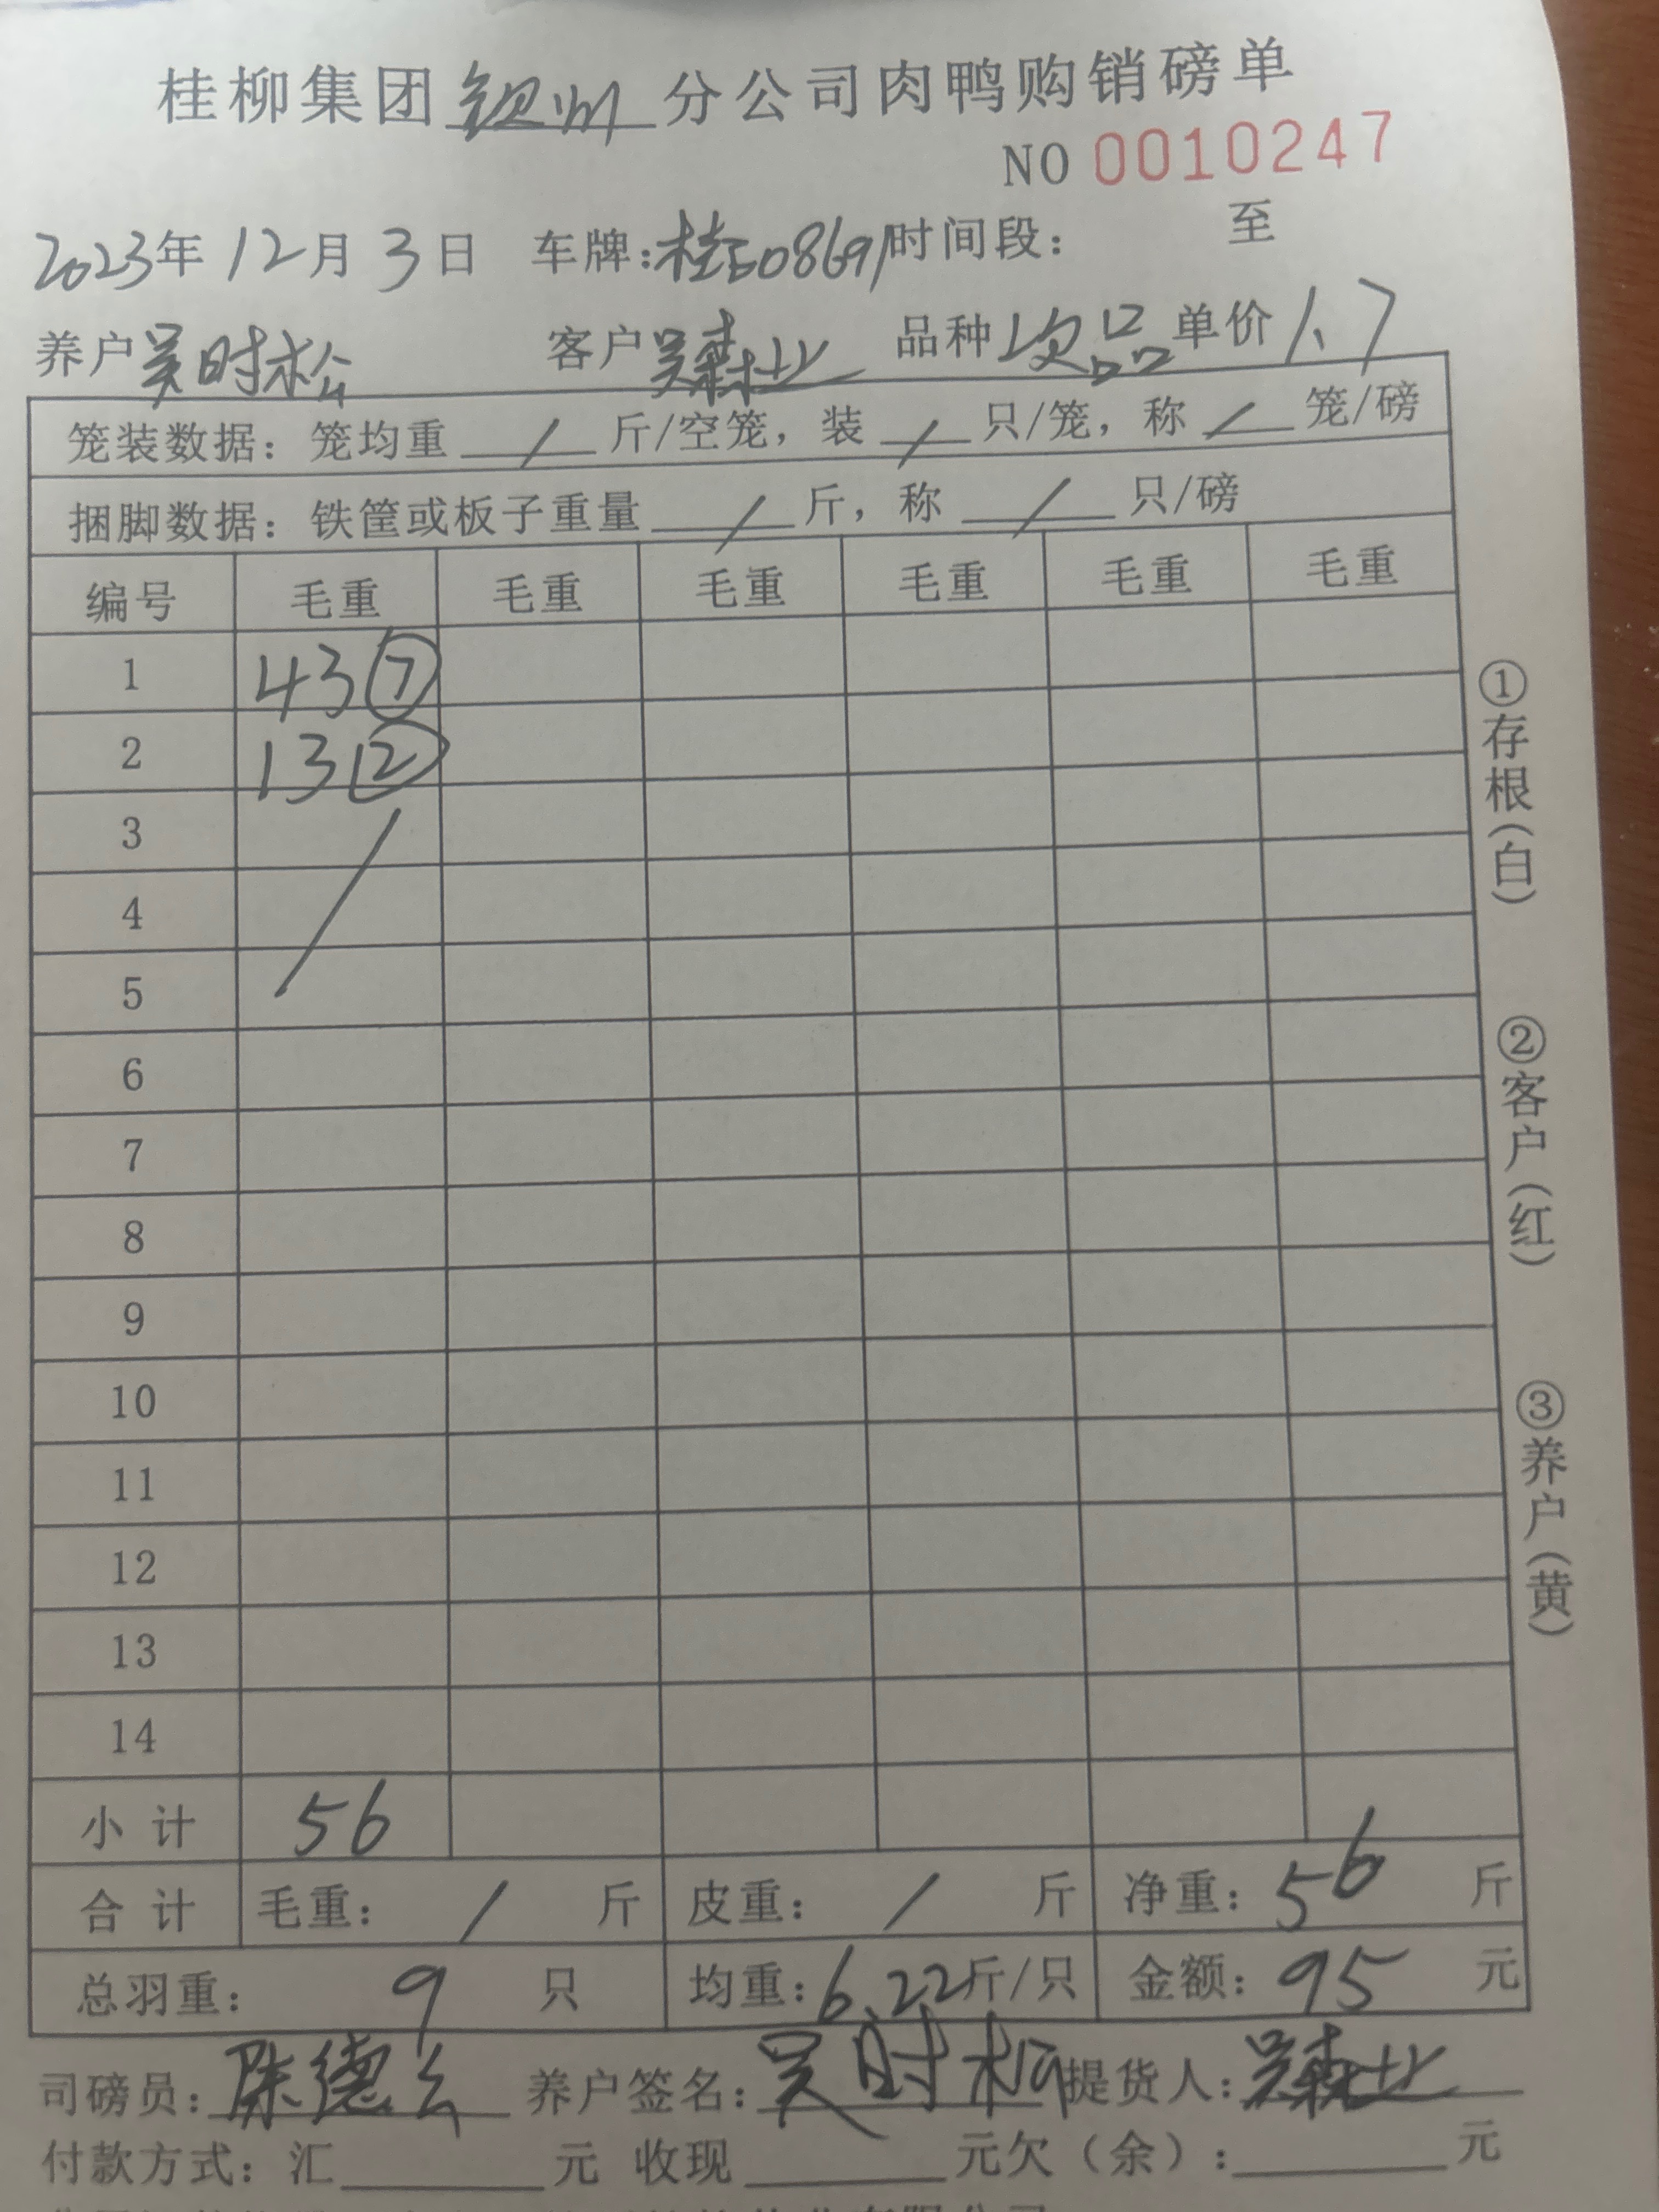 桂柳集团钦州分公司肉鸭购销磅单
NO 0010247
2023年12月3日 车牌:桂E08691时间段: 至
养户吴时松 客户吴森业 品种次品单价1.7
笼装数据: 笼均重 / 斤/空笼, 装 / 只/笼, 称 / 笼/磅
捆脚数据: 铁筐或板子重量 / 斤, 称 / 只/磅
编号 毛重 毛重 毛重 毛重 毛重 毛重
1 43⑦
2 13②
3
4
5
6
7
8
9
10
11
12
13
14
小计 56
合计 毛重: / 斤 皮重: / 斤 净重: 56 斤
总羽重: 9 只 均重:6.22斤/只 金额:95 元
司磅员:陈德 养户签名:吴时松 提货人:吴森业
付款方式: 汇 元 收现 元欠(余): 元
①存根(白)
②客户(红)
③养户(黄)